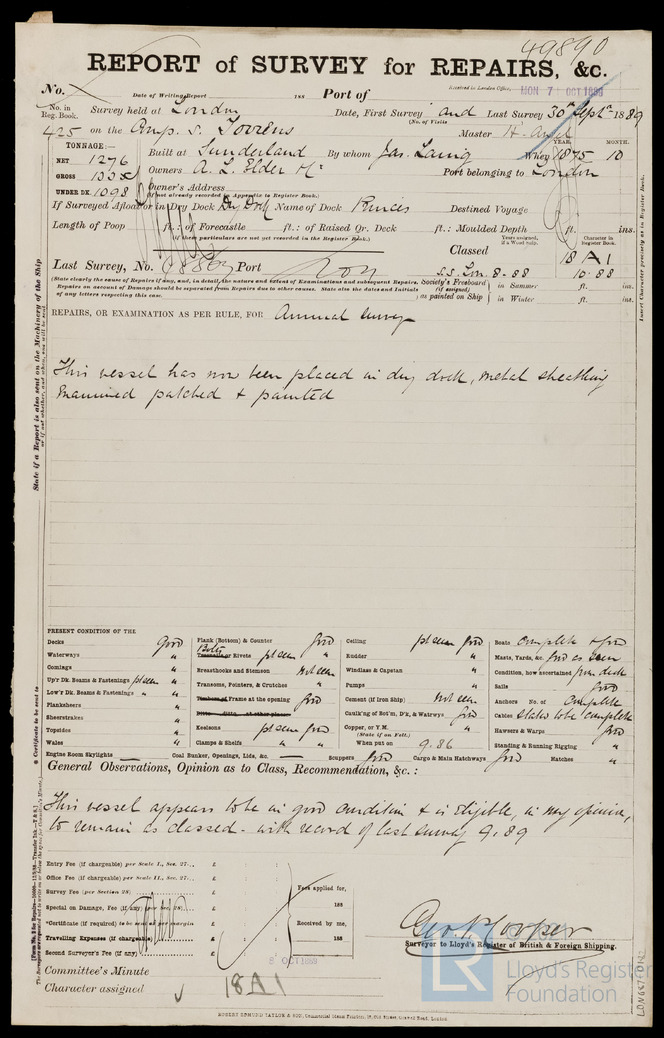 49890
REPORT of SURVEY for REPAIRS, &c.
No. Date of Writing Report 188 Port of Received in London Office, MON 7 OCT 1889
No. in Reg. Book. Survey held at London Date, First Survey and Last Survey 30th Septr 1889
(No. of Visits )
425 on the Comp. s. Torrens Master H. Angel
TONNAGE:— YEAR. MONTH.
NET 1276 Built at Sunderland By whom Jas. Laing When 1875 10
GROSS Owners A. L. Elder & Co Port belonging to London
UNDER DK. 1098 Owner's Address
(if not already recorded in Appendix to Register Book.)
If Surveyed Afloat or in Dry Dock Dry Dock Name of Dock Princes Destined Voyage
Length of Poop ft.: of Forecastle ft.: of Raised Qr. Deck ft.: Moulded Depth ft. ins.
(if these particulars are not yet recorded in the Register Book.)
Classed Years assigned, if a Wood ship. Character in Register Book.
18 A1
Last Survey, No. Port Lon S.S. Lon. 8.88 10.88
(State clearly the cause of Repairs if any, and, in detail, the nature and extent of Examinations and subsequent Repairs. Repairs on account of Damage should be separated from Repairs due to other causes. State also the dates and Initials of any letters respecting this case.
Society's Freeboard (if assigned) as painted on Ship in Summer ft. ins.
in Winter ft. ins.
REPAIRS, OR EXAMINATION AS PER RULE, FOR Annual Survey
This vessel has now been placed in dry dock, metal sheathing
Examined patched & painted
PRESENT CONDITION OF THE
Decks good Plank (Bottom) & Counter good Ceiling pt seen good Boats Complete & good
Waterways " Treenails or Rivets Bolts pt seen " Rudder " Masts, Yards, &c. good as seen
Comings " Breasthooks and Stemson not seen Windlass & Capstan " Condition, how ascertained from deck
Up'r Dk. Beams & Fastenings pt seen " Transoms, Pointers, & Crutches " Pumps " Sails good
Low'r Dk. Beams & Fastenings " Timbers of Frame at the opening good Cement (if Iron Ship) not seen Anchors No. of Complete
Planksheers " Ditto Ditto at other places Caulk'ng of Bot'm, D'k, & Watrwys good Cables stated to be complete
Sheerstrakes " Keelsons pt seen good Copper, or Y.M. (State if on Felt.) Hawsers & Warps good
Topsides " Clamps & Shelfs " " When put on 9.86 Standing & Running Rigging "
Wales "
Engine Room Skylights — Coal Bunker, Openings, Lids, &c. — Scuppers good Cargo & Main Hatchways good Hatches "
General Observations, Opinion as to Class, Recommendation, &c.:
This vessel appears to be in good condition & is eligible, in my opinion,
to remain as classed - with record of last survey 9.89
Entry Fee (if chargeable) per Scale I., Sec. 27.. £ : :
Office Fee (if chargeable) per Scale II., Sec. 27.. £ : :
Survey Fee (per Section 28) £ : : Fees applied for,
Special on Damage, Fee (if any) (per Sec. 28).. £ : : 188
*Certificate (if required) to be sent as per margin £ : : Received by me,
Travelling Expenses (if chargeable) £ : : 188
Second Surveyor's Fee (if any) £ : :
Geo. P. Cooper
Surveyor to Lloyd's Register of British & Foreign Shipping.
Committee's Minute OCT 1889
Character assigned 18 A1
ROBERT EDMUND TAYLOR & SON,
State if a Report is also sent on the Machinery of the Ship
* Certificate to be sent to
Insert Character precisely as in Register Book.
LR
Lloyd's Register
Foundation